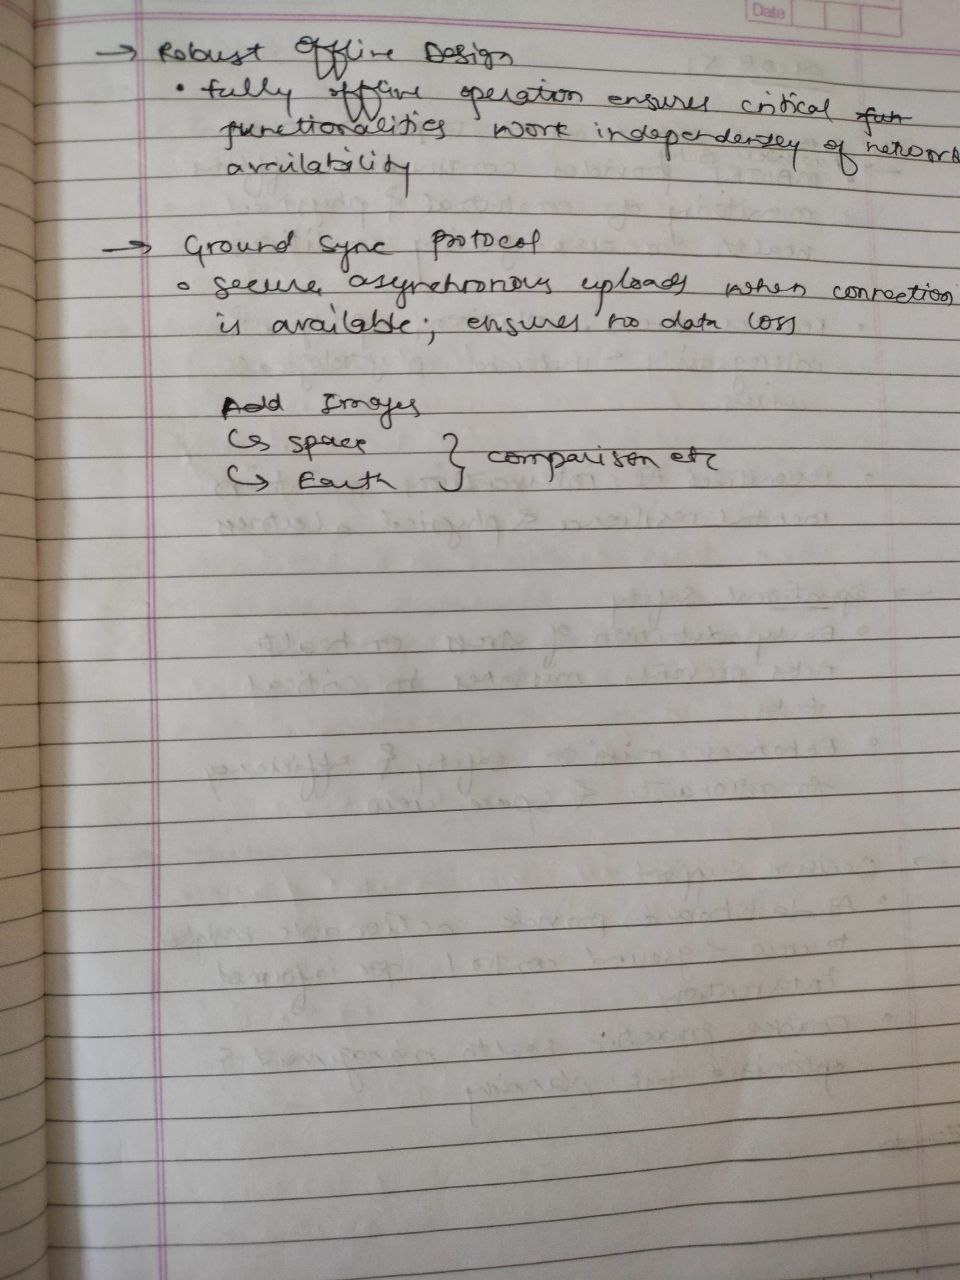 Date
→ Robust Offline Design
• fully offline operation ensures critical fun
functionalities work independensey of network
availability
→ Ground Sync Protocol
• secure asynchronous uploads when connection
is available; ensures no data loss
Add Images
↳ space
↳ Earth } comparison etc